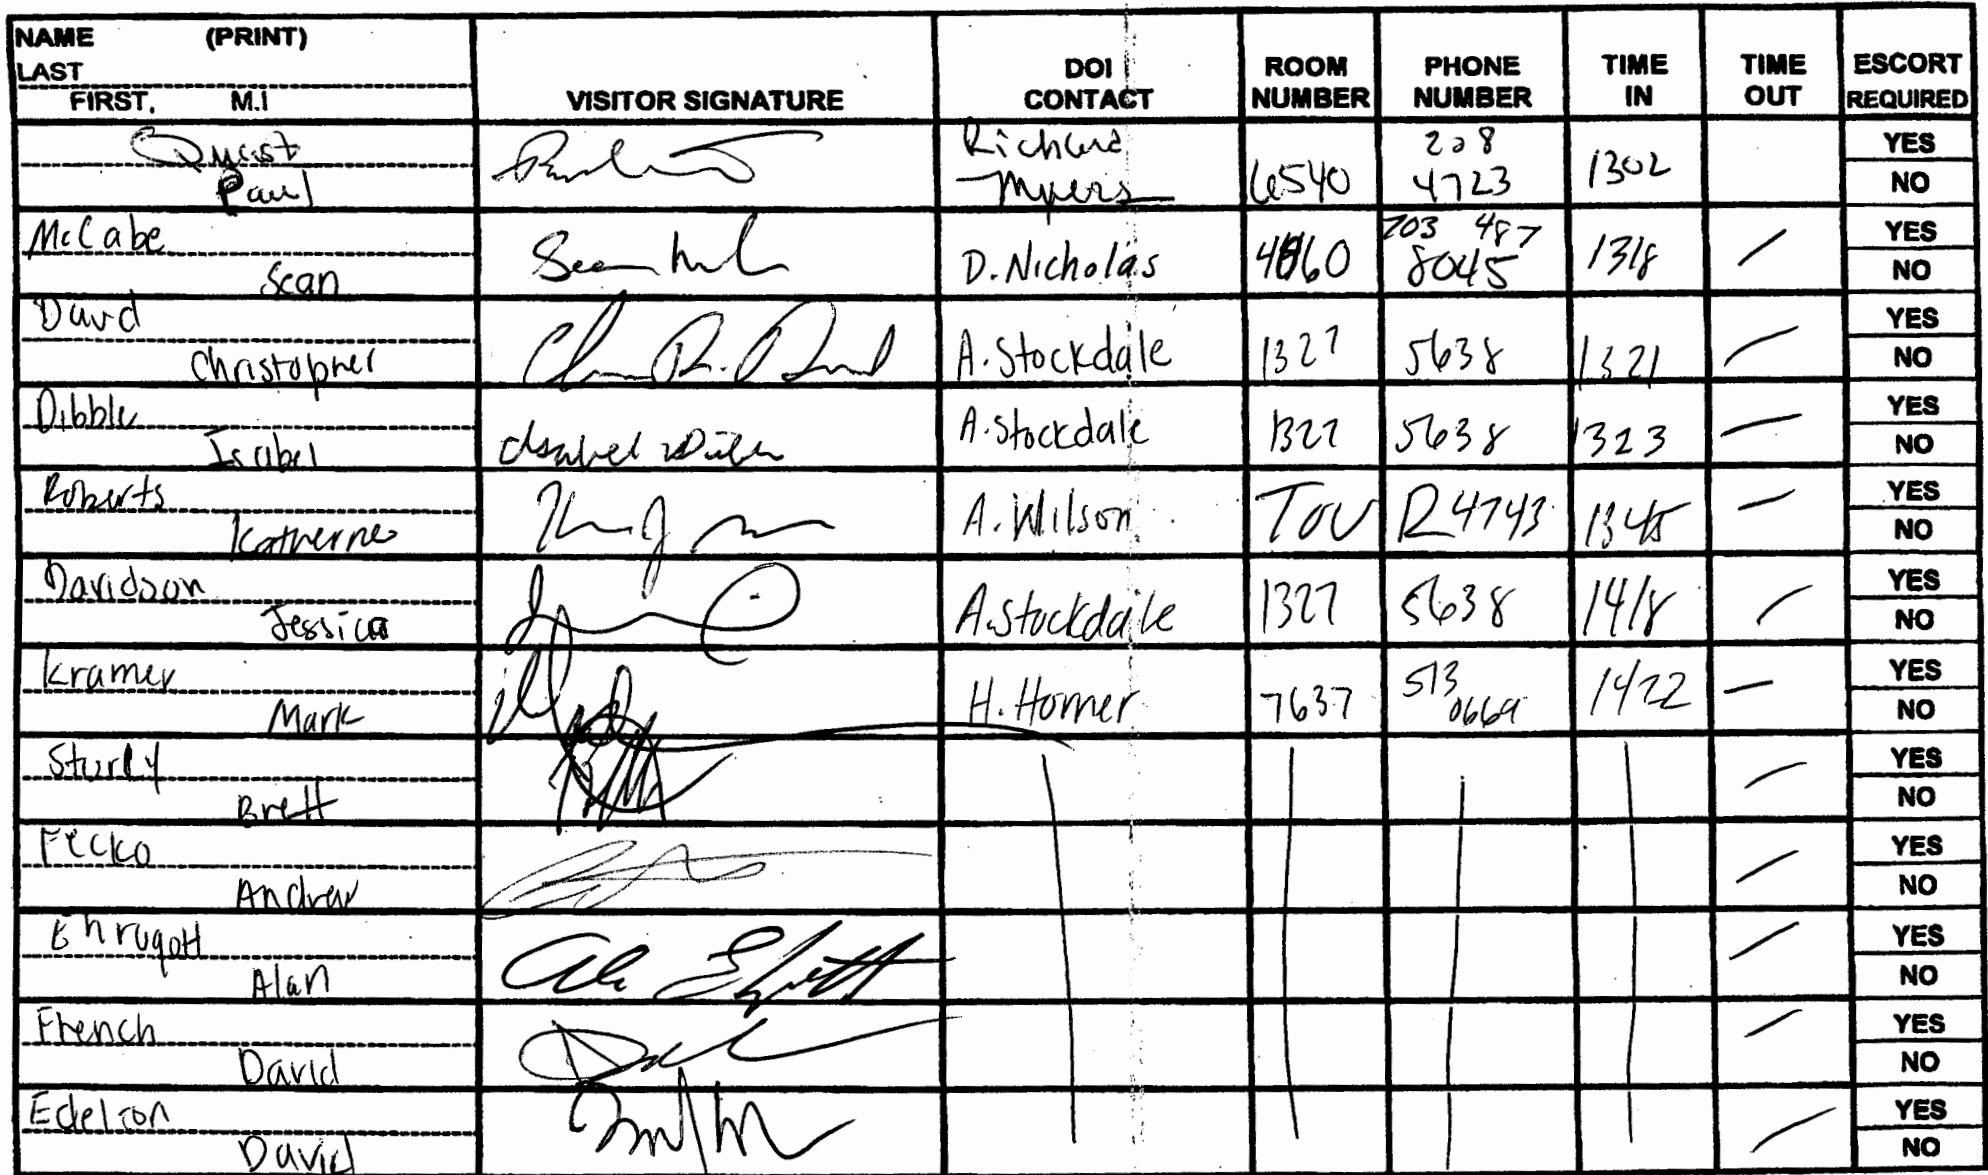 NAME (PRINT)
LAST
FIRST, M.I
VISITOR SIGNATURE
DOI CONTACT
ROOM NUMBER
PHONE NUMBER
TIME IN
TIME OUT
ESCORT REQUIRED
Paul
Richard Myers
6540
208 4723
1302
YES
NO
McCabe
Sean
D. Nicholas
4860
703 487 8045
1318
YES
NO
David
Christopher
A. Stockdale
1327
5638
1321
YES
NO
Dibble
Isabel
Isabel Dibble
A. Stockdale
1327
5638
1323
YES
NO
Roberts
Katherine
A. Wilson
TOU
R 4743
1345
YES
NO
Davidson
Jessica
A. Stockdale
1327
5638
1418
YES
NO
Kramer
Mark
H. Homer
7637
513 0669
1422
YES
NO
Brett
YES
NO
Fecko
Andrew
YES
NO
Alan
YES
NO
French
David
YES
NO
Edelson
David
YES
NO